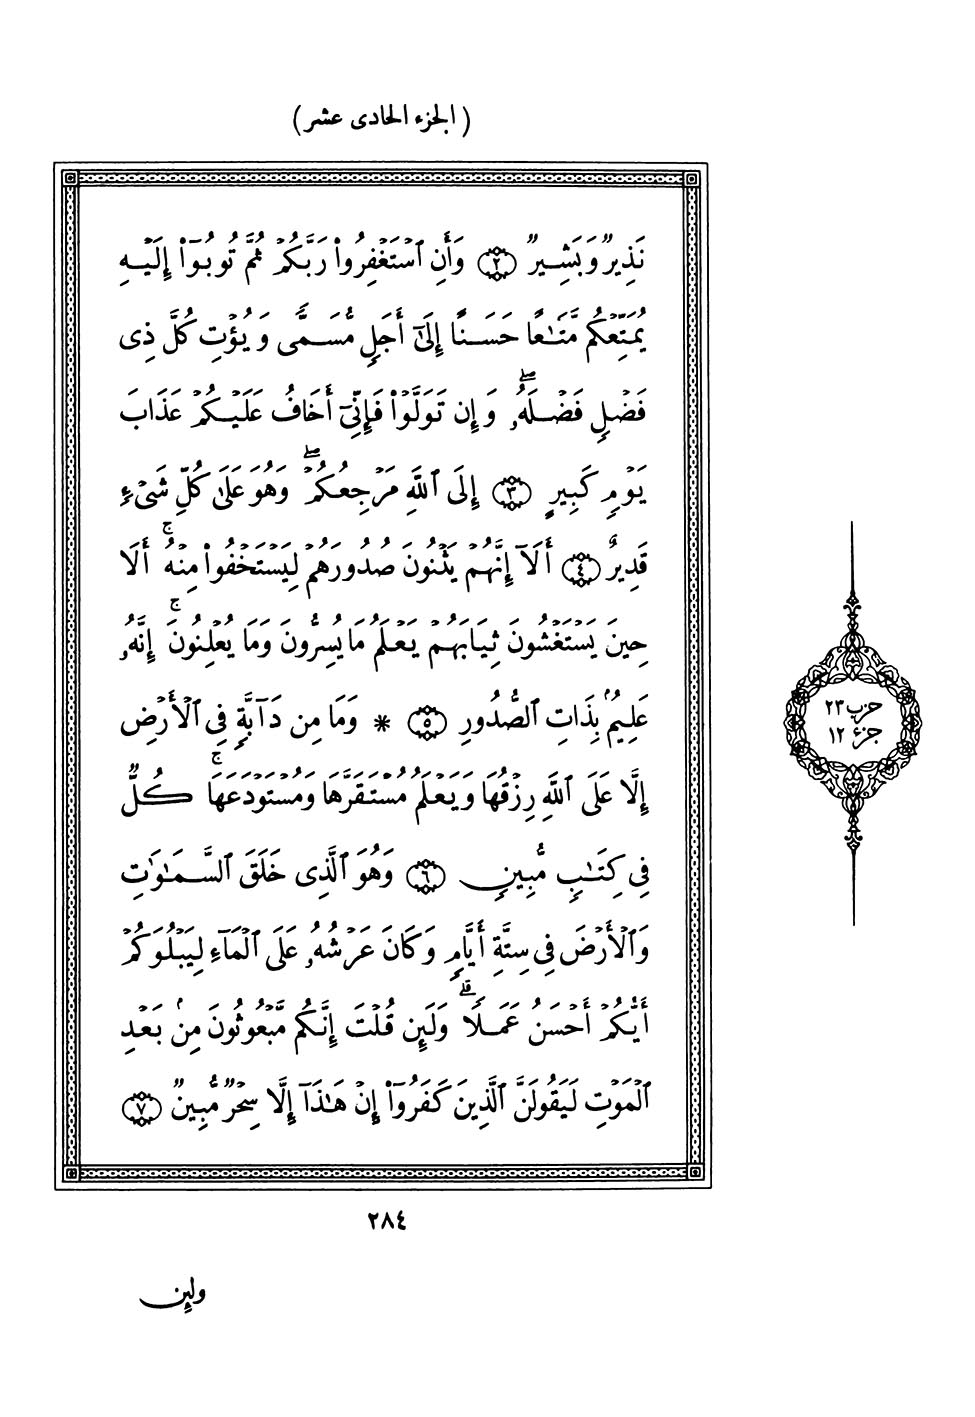 ( الجزء الحادى عشر )
نَذِيرٌ وَبَشِيرٌ ﴿٢﴾ وَأَنِ ٱسْتَغْفِرُواْ رَبَّكُمْ ثُمَّ تُوبُوٓاْ إِلَيْهِ
يُمَتِّعْكُم مَّتَـٰعًا حَسَنًا إِلَىٰٓ أَجَلٍ مُّسَمًّى وَيُؤْتِ كُلَّ ذِى
فَضْلٍ فَضْلَهُۥۖ وَإِن تَوَلَّوْاْ فَإِنِّىٓ أَخَافُ عَلَيْكُمْ عَذَابَ
يَوْمٍ كَبِيرٍ ﴿٣﴾ إِلَى ٱللَّهِ مَرْجِعُكُمْۖ وَهُوَ عَلَىٰ كُلِّ شَىْءٍ
قَدِيرٌ ﴿٤﴾ أَلَآ إِنَّهُمْ يَثْنُونَ صُدُورَهُمْ لِيَسْتَخْفُواْ مِنْهُۚ أَلَا
حِينَ يَسْتَغْشُونَ ثِيَابَهُمْ يَعْلَمُ مَا يُسِرُّونَ وَمَا يُعْلِنُونَۚ إِنَّهُۥ
عَلِيمُۢ بِذَاتِ ٱلصُّدُورِ ﴿٥﴾ * وَمَا مِن دَآبَّةٍ فِى ٱلْأَرْضِ
إِلَّا عَلَى ٱللَّهِ رِزْقُهَا وَيَعْلَمُ مُسْتَقَرَّهَا وَمُسْتَوْدَعَهَاۚ كُلٌّ
فِى كِتَـٰبٍ مُّبِينٍ ﴿٦﴾ وَهُوَ ٱلَّذِى خَلَقَ ٱلسَّمَـٰوَٰتِ
وَٱلْأَرْضَ فِى سِتَّةِ أَيَّامٍ وَكَانَ عَرْشُهُۥ عَلَى ٱلْمَآءِ لِيَبْلُوَكُمْ
أَيُّكُمْ أَحْسَنُ عَمَلًاۗ وَلَئِن قُلْتَ إِنَّكُم مَّبْعُوثُونَ مِنۢ بَعْدِ
ٱلْمَوْتِ لَيَقُولَنَّ ٱلَّذِينَ كَفَرُوٓاْ إِنْ هَـٰذَآ إِلَّا سِحْرٌ مُّبِينٌ ﴿٧﴾
حزب ٢٣
جزء ١٢
٢٨٤
ولئن